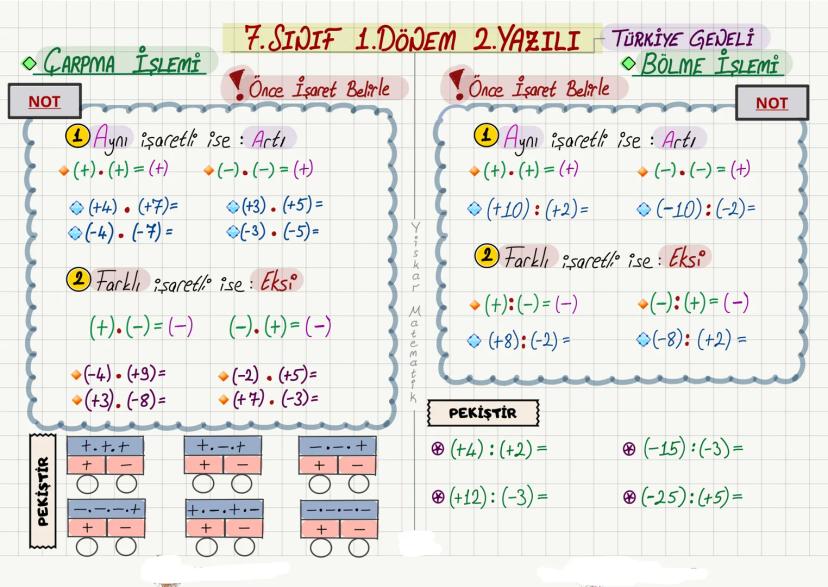 7.SINIF 1.DÖNEM 2.YAZILI TÜRKİYE GENELİ
ÇARPMA İŞLEMİ
! Önce İşaret Belirle
NOT
1 Aynı işaretli ise : Artı
(+).(+)=(+) (-).(-)=(+)
(+4) . (+7)= (+3) . (+5)=
(-4) . (-7)= (-3) . (-5)=
2 Farklı işaretli ise : Eksi
(+).(-)=(-) (-).(+)=(-)
(-4) . (+9)= (-2) . (+5)=
(+3) . (-8)= (+7) . (-3)=
PEKİŞTİR
+.+.+ +.-.+ -.-.+
+ - + - + -
-.-.-.+ +.-.+.- -.-.-.-
+ - + - + -
Yiskar Matematik
BÖLME İŞLEMİ
! Önce İşaret Belirle
NOT
1 Aynı işaretli ise : Artı
(+).(+)=(+) (-).(-)=(+)
(+10) : (+2)= (-10) : (-2)=
2 Farklı işaretli ise : Eksi
(+):(-)=(-) (-):(+)=(-)
(+8):(-2)= (-8): (+2)=
PEKİŞTİR
(+4) : (+2)= (-15) :(-3)=
(+12) : (-3)= (-25) : (+5)=